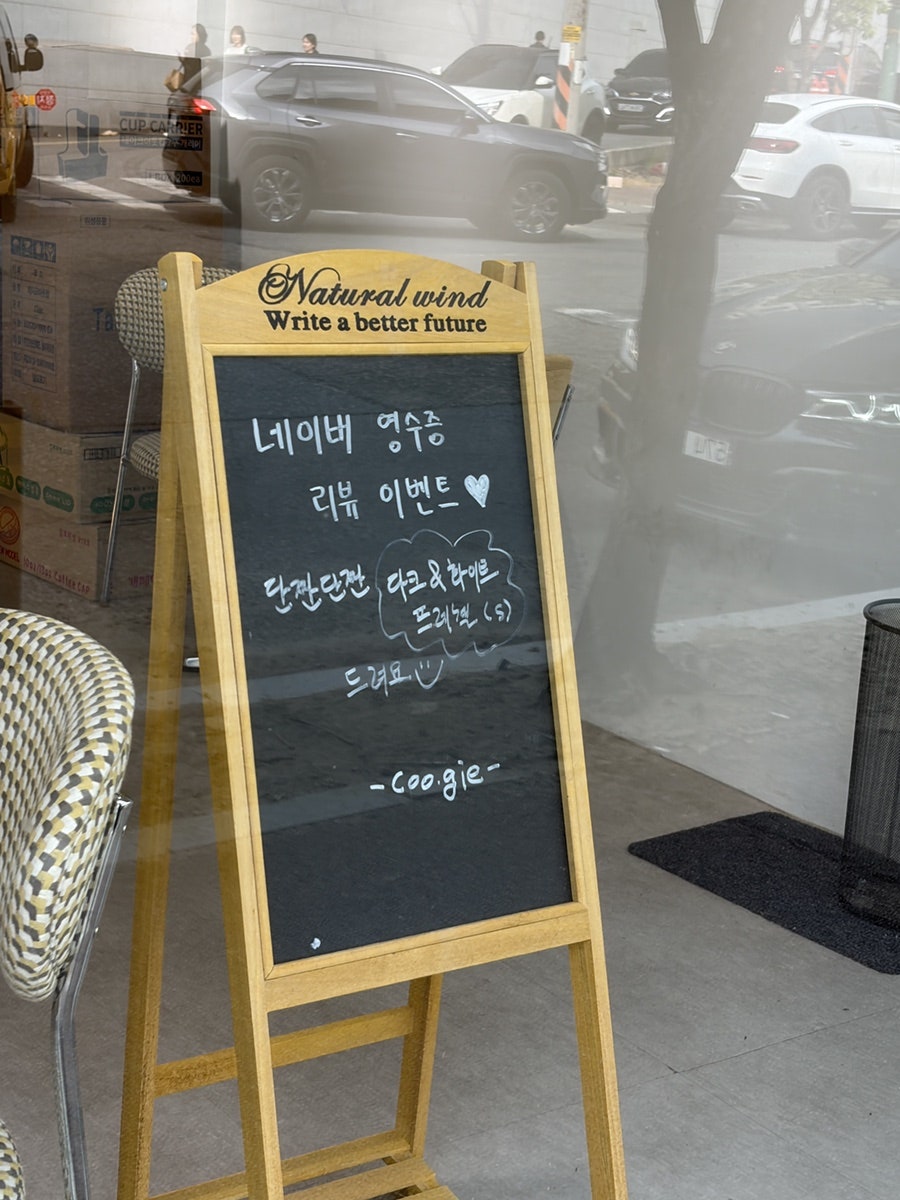 Natural wind
Write a better future
네이버 영수증
리뷰 이벤트♥
단짠단짠 다크&화이트
프레첼 (S)
드려요
-coo.gie-
CUP CARRIER